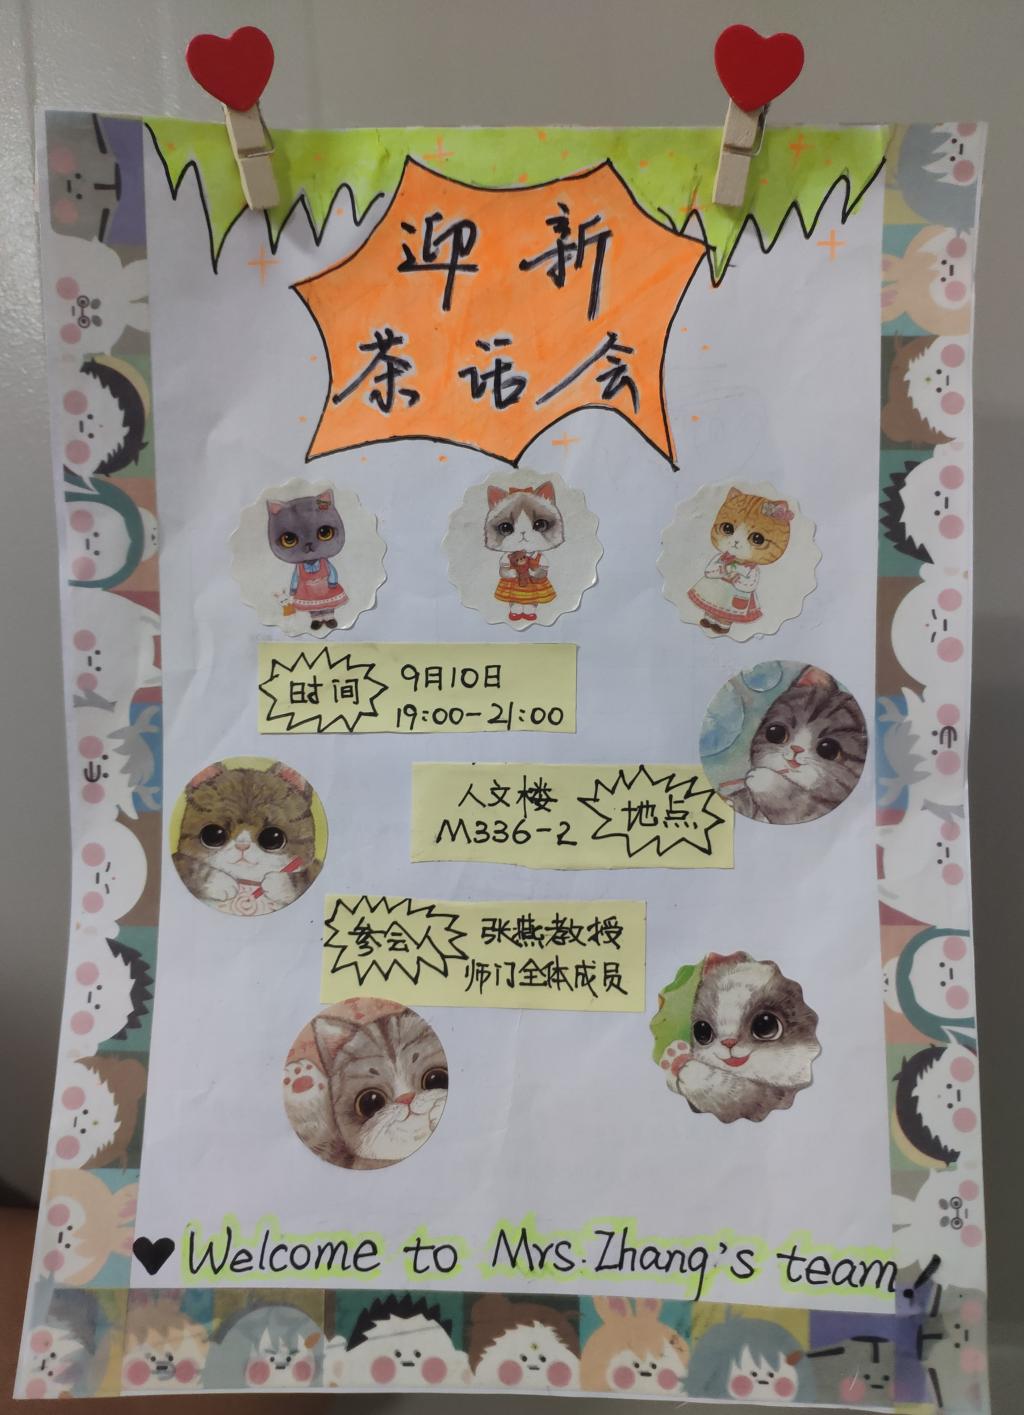 迎新
茶话会
时间
9月10日
19:00-21:00
人文楼
M336-2
地点
参会人
张燕教授
师门全体成员
♥Welcome to Mrs. Zhang's team!